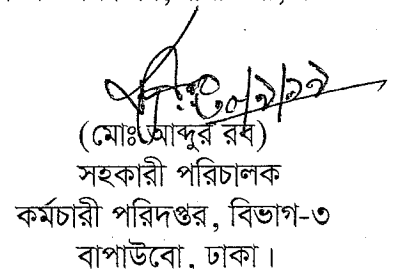 (মোঃ আব্দুর রব)
সহকারী পরিচালক
কর্মচারী পরিদপ্তর, বিভাগ-৩
বাপাউবো, ঢাকা।